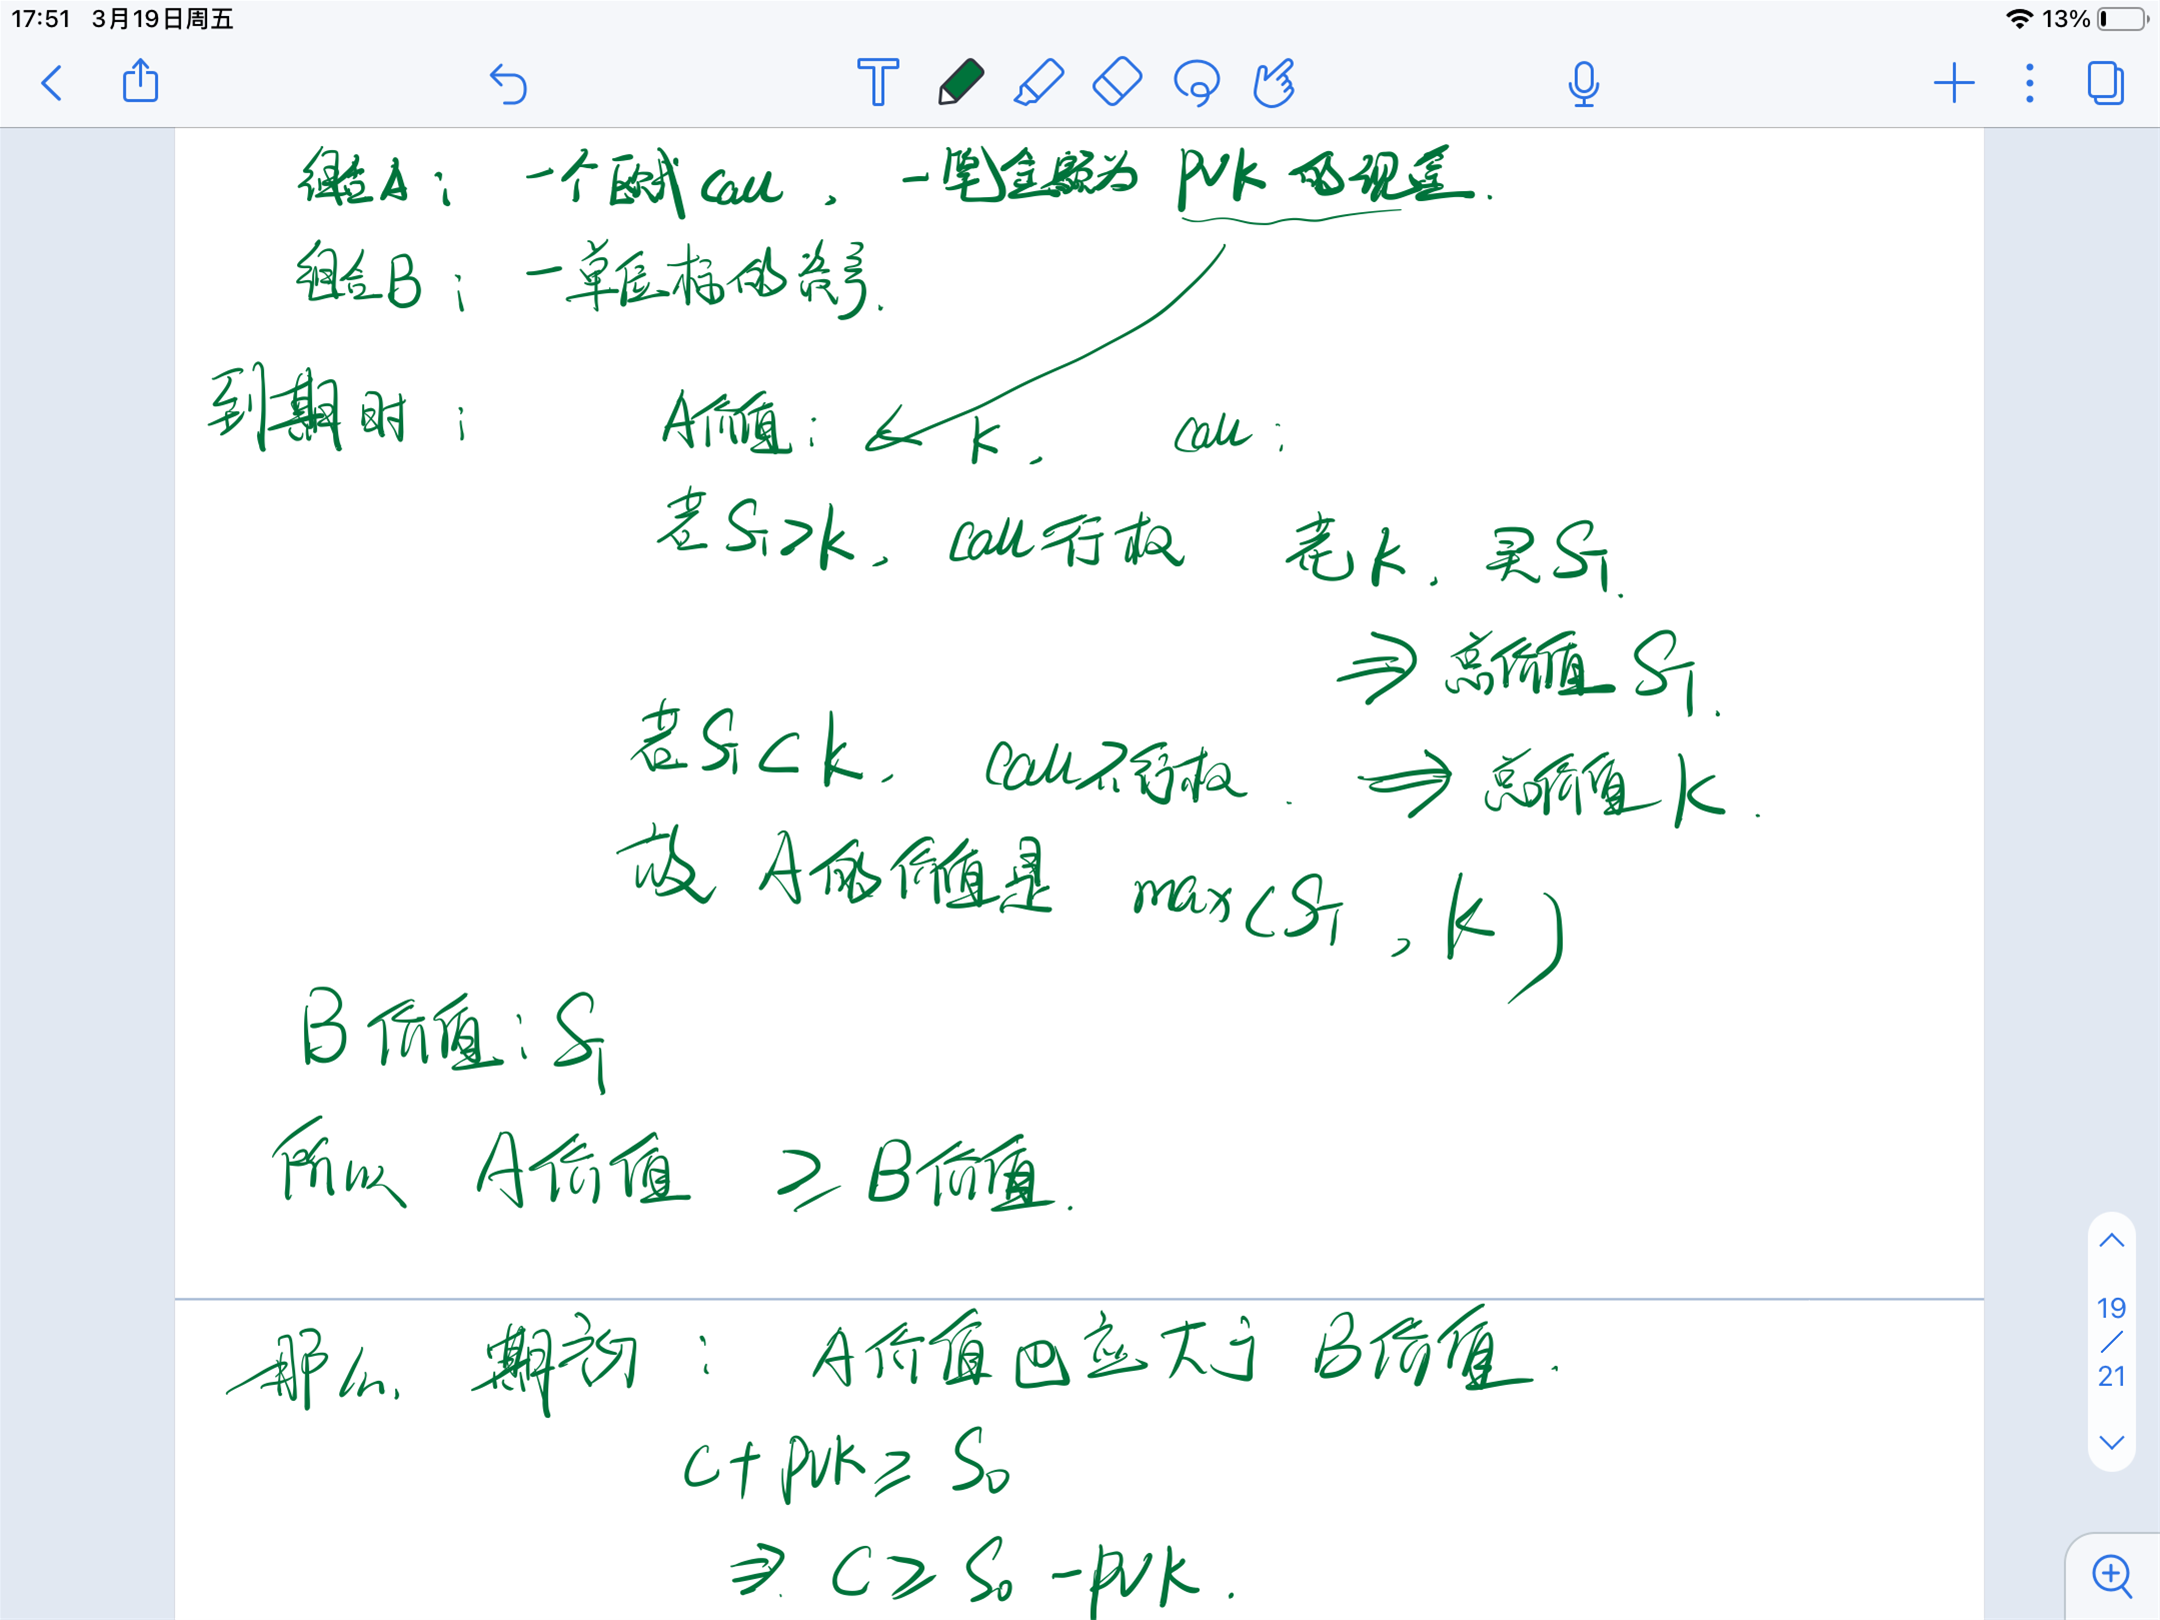 17:51 3月19日周五 13%
组合A: 一个欧式call, 一笔金额为 PVK 的现金.
组合B: 一单位标的资产.
到期时: A价值: ← K. call:
若 S_T>K, call行权 花K, 买S_T.
⇒ 总价值 S_T.
若 S_T<K, call不行权. ⇒ 总价值 K.
故 A的价值是 max(S_T, K)
B价值: S_T
所以 A价值 ≥ B价值.
那么, 期初: A价值也应大于 B价值.
C+PVK ≥ S_0
⇒ C ≥ S_0 - PVK.
19
/
21